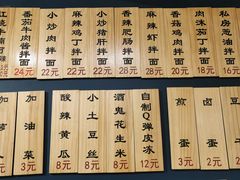 番茄牛肉酱拌面
24元
小炒肉拌面
22元
麻辣鸡丁拌面
22元
小炒猪肝拌面
18元
香辣肥肠拌面
18元
麻辣虾拌面
20元
香菇肉酱拌面
18元
肉沫茄丁拌面
18元
私房拌面
16元
加
加油菜
3元
酸辣黄瓜
8元
小土豆丝
8元
酒鬼花生米
8元
自制Q弹皮冻
12元
煎蛋
卤蛋
豆